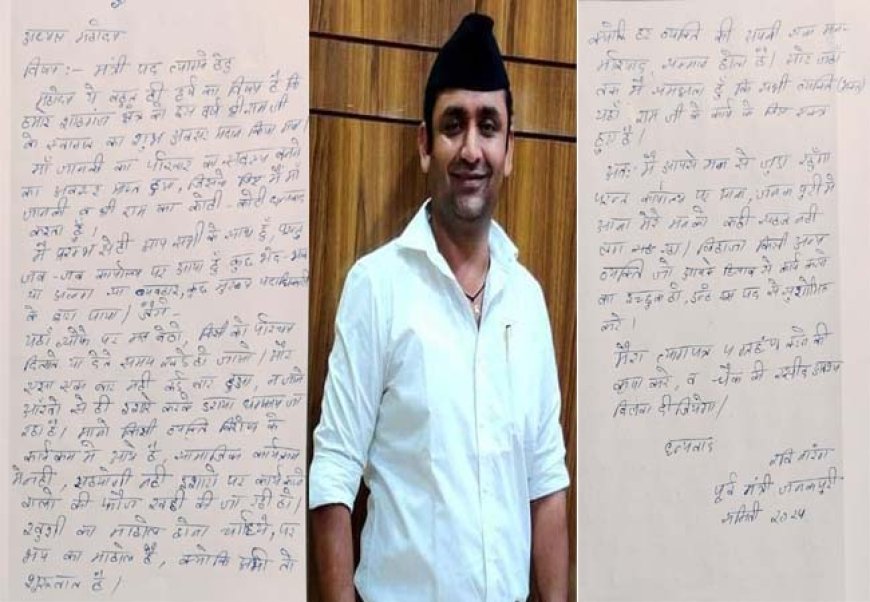 अध्यक्ष महोदय
विषय:- मंत्री पद त्यागने हेतु
महोदय ये बहुत ही हर्ष का विषय है कि
हमारे क्षेत्र को इस वर्ष श्री राम जी
के स्वागत का शुभ अवसर प्रदान किया गया।
माँ जानकी का परिवार का सदस्य बनने
का अवसर प्राप्त हुआ, जिसके लिए मैं माँ
जानकी व श्री राम का कोटी-कोटी धन्यवाद
करता हूँ।
मैं प्रारंभ से ही आप सभी के साथ हूँ, परन्तु
जब-जब कार्यालय पर आया हूँ कुछ भेद-भाव
या अलग सा व्यवहार, कुछ मुख्य पदाधिकारियों
के द्वारा पाया। जैसे-
यहाँ सौफे पर मत बैठो, किसी का परिचय
दिलाते या देते समय खड़े हो जाओ। और
ऐसा एक बार नहीं कई बार हुआ, न जाने
आँखों से ही इशारे करके डराया धमकाया जा
रहा है। मानो किसी व्यक्ति विशेष के
कार्यक्रम में आये है, सामाजिक कार्यक्रम
में नही, सहयोगी नही इशारो पर कार्य करने
वालो की फौज खड़ी की जा रही हो।
खुशी का माहोल होना चाहिये, पर
भय का माहोल है, क्योकि अभी तो
शुरूआत है।
क्योकि हर व्यक्ति की अपनी मान-
मर्यादा, सम्मान होता है। और जहाँ
तक मैं समझता हूँ कि सभी व्यक्ति (भक्त)
यहाँ राम जी के कार्य के लिए एकत्र
हुए है।
अत: मैं आपसे मन से जुड़ा रहूँगा
परन्तु कार्यालय पर आना, जनक पुरी मे
आना मेरे मन को कही सहज नही
लग रहा। लिहाजा किसी अन्य
व्यक्ति जो आपके हिसाब से कार्य करने
का इच्छुक हो, उन्हे इस पद से सुशोभित
करे।
मेरा त्यागपत्र ग्रहण करने की
कृपा करे, व चैक की रसीद अवश्य
दिलवा दीजियेगा।
धन्यवाद
रवि नारंग
पूर्व मंत्री जनकपुरी
समिति २०२५